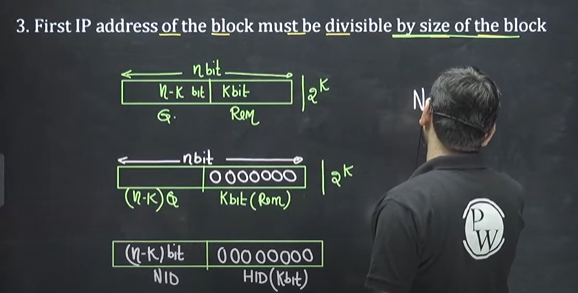 3. First IP address of the block must be divisible by size of the block
n bit
n-k bit Kbit 2^K
Q. Rem
N
n bit
0000000 2^K
(n-k) Q Kbit (Rem)
(n-k) bit 00000000
NID HID (Kbit)
P
W